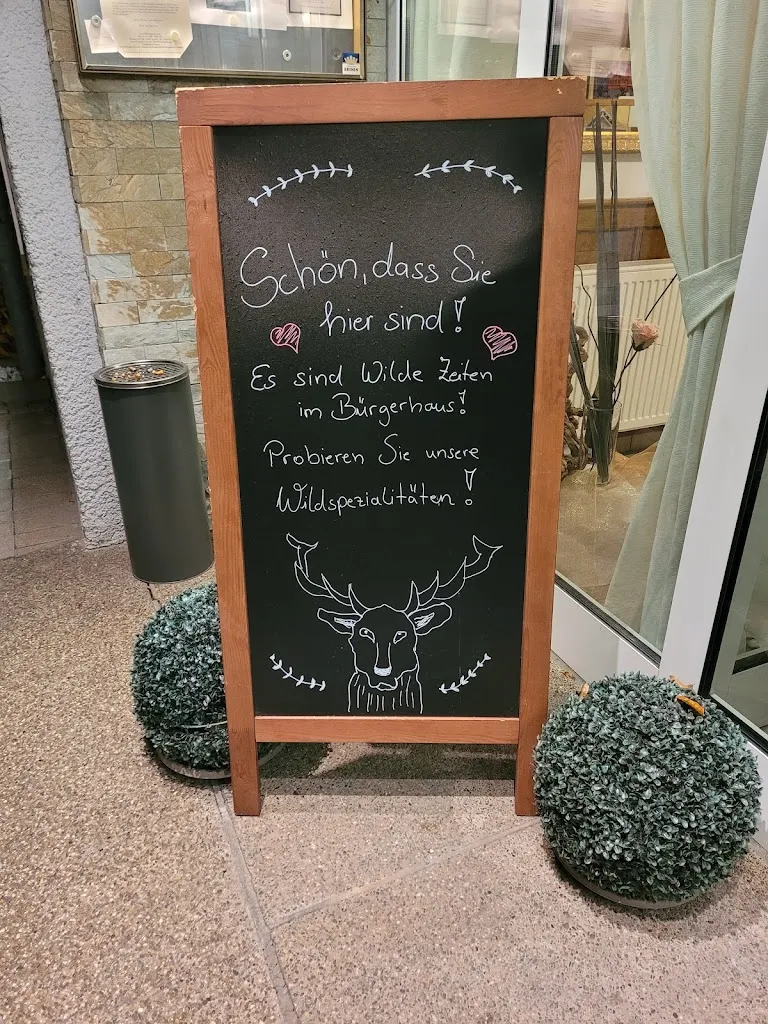 Schön, dass Sie
hier sind!
Es sind Wilde Zeiten
im Bürgerhaus!
Probieren Sie unsere
Wildspezialitäten!